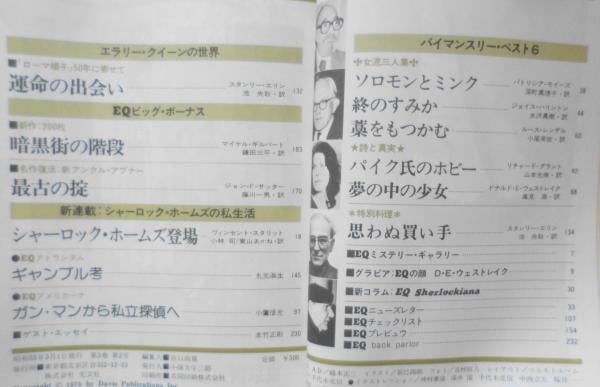 エラリー・クイーンの世界
■「ローマ帽子」50年に寄せて
運命の出会い
スタンリー・エリン
池 央耿・訳
132
EQビッグ・ボーナス
■新作・200枚
暗黒街の階段
マイケル・ギルバート
鎌田三平・訳
183
■名作復活 新アンクル・アブナー
最古の掟
ジョン・F・サッター
隆川一男・訳
170
新連載:シャーロック・ホームズの私生活
シャーロック・ホームズ登場
ヴィンセント・スタリット
小林 司/東山あかね・訳
18
●EQアトランダム
ギャンブル考
145
●EQアメリカーナ
ガン・マンから私立探偵へ
小鷹信光
97
■ゲスト・エッセイ
230
定価 ¥500
バイマンスリー・ベスト6
✢女流三人集✢
ソロモンとミンク
パトリシア・モイーズ
深町眞理子・訳
38
終のすみか
ジョイス・ハリントン
44
藁をもつかむ
ルース・レンデル
60
★詩と真実★
パイク氏のホビー
リチャード・グラント
62
夢の中の少女
ドナルド・E・ウェストレイク
68
✻特別料理✻
思わぬ買い手
スタンリー・エリン
池 央耿・訳
134
■EQミステリー・ギャラリー
7
■グラビア:EQの顔 D・E・ウェストレイク
9
■新コラム:EQ Sherlockiana
30
■EQニューズレター
33
■EQチェックリスト
107
■EQプレビュウ
154
■EQ back parlor
232